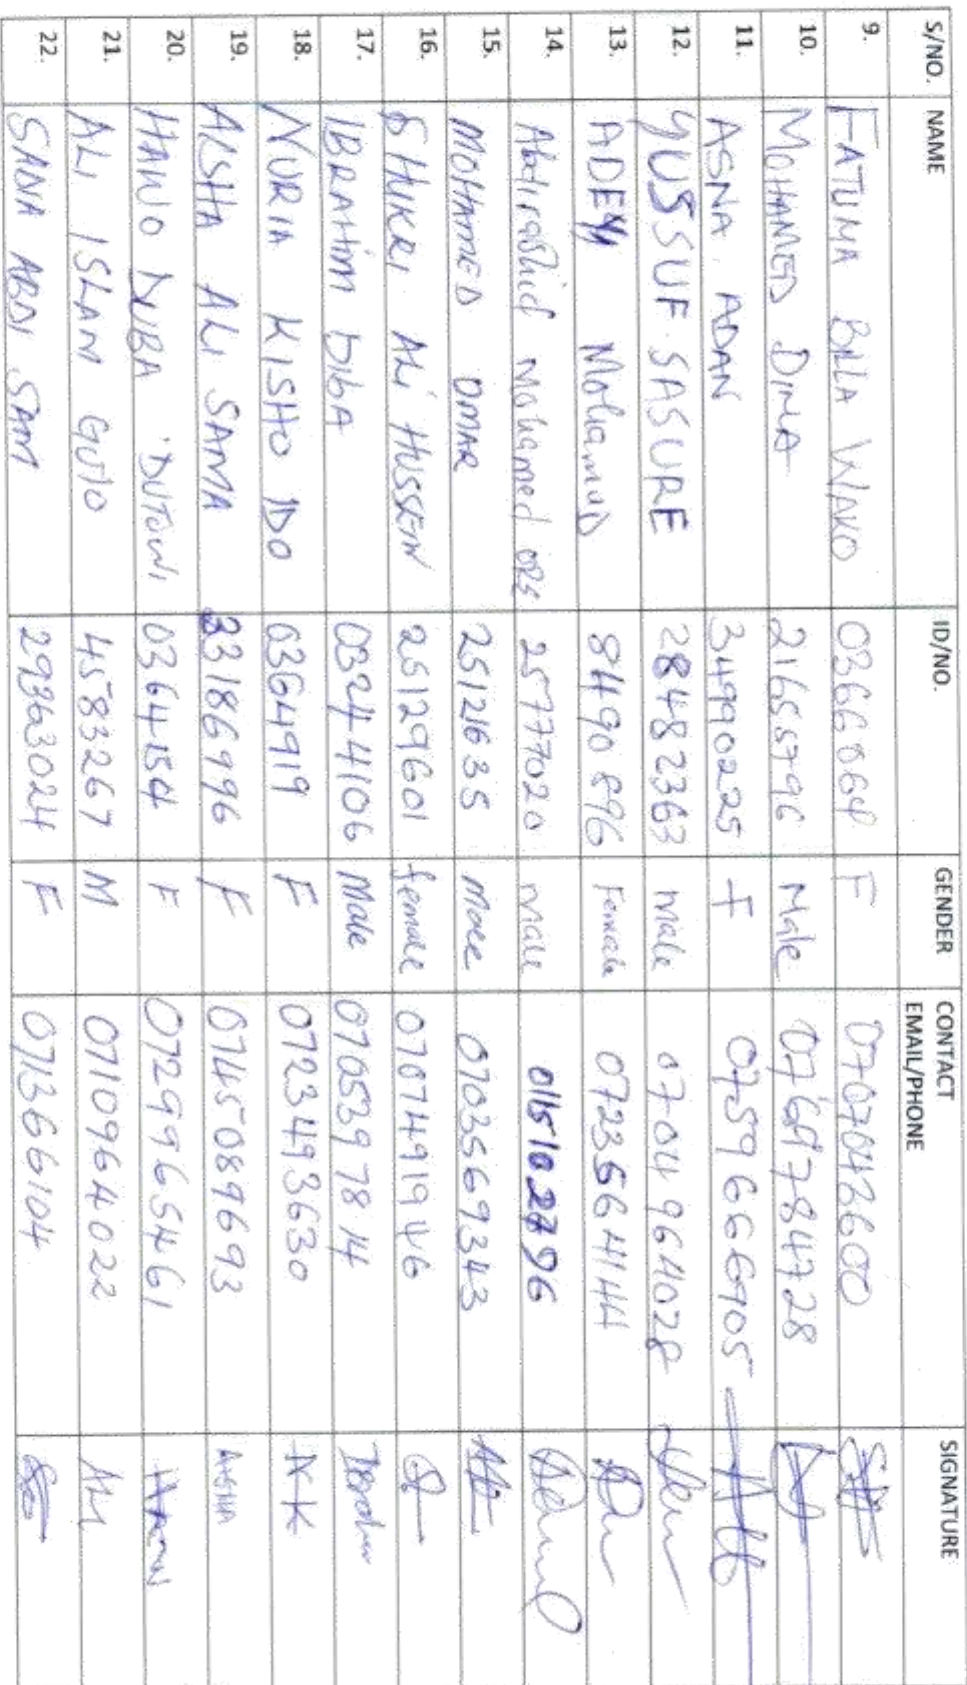 S/NO. NAME ID/NO. GENDER CONTACT EMAIL/PHONE SIGNATURE
9. FATUMA BILLA WAKO 03666664 F 0707042600
10. MOHAMED DIMA 21655796 Male 0769784728
11. ASNA ADAN 34990225 F 0759666905
12. YUSSUF SASURE 28482363 Male 0704964028
13. ADEY Mohamud 84490896 Female 0723564144
14. Abdirashid Mohamed 25777020 Male 0115102796
15. MOHAMED OMAR 25121635 Male 0703569343
16. SHUKRI ALi HUSSEIN 25129601 female 0707491946
17. IBRAHIM DIBA 03244106 Male 0705397814
18. NURIA KISHO IDO 03649919 F 0723493630 NK
19. AISHA ALI SAMA 33186996 F 0745089693 AISHA
20. HAWO DUBA DUTOWI 0364154 F 07299965461
21. ALI ISLAM GUYO 4583267 M 0710964022 ALI
22. SADIA ABDI SAM 29363024 F 071366104